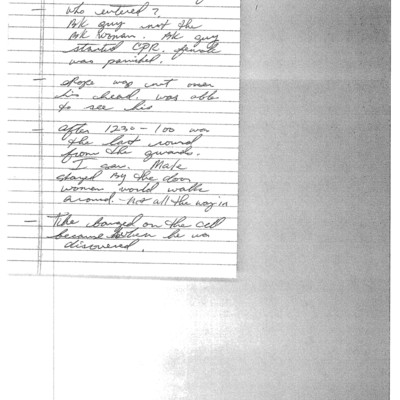 - who entered?
BK guy not the
BK woman. BK guy
started CPR. female
was panicked.
- rope was not over
his head. was able
to see his
- after 1230-100 was
the last round
from the guards.
I saw. Male
stayed by the door
women would walk
around. - not all the way in
- Tike banged on the cell
because when he was
discovered.